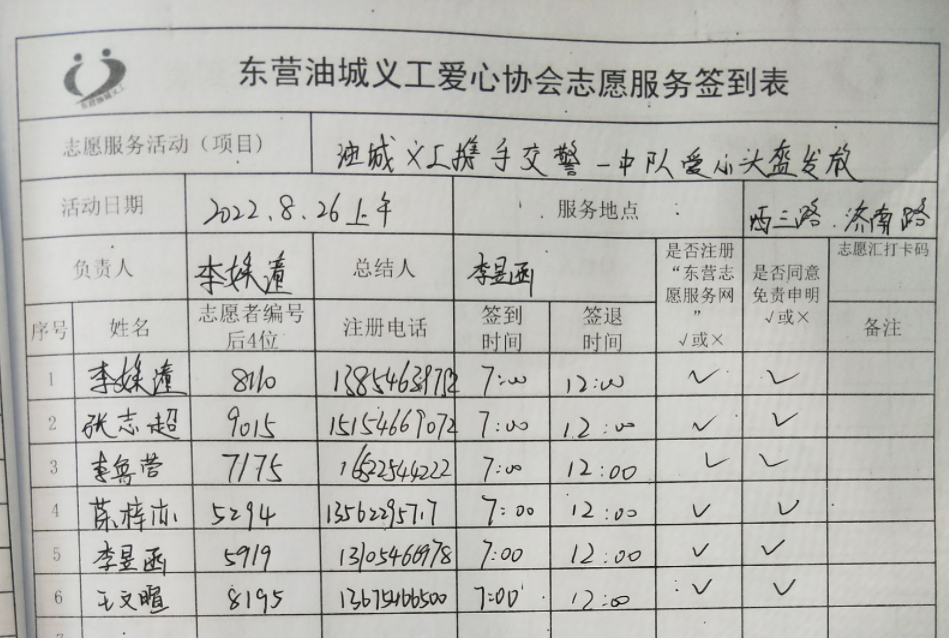 东营油城义工
东营油城义工爱心协会志愿服务签到表
志愿服务活动（项目） 油城义工携手交警一中队爱心头盔发放
活动日期 2022.8.26上午 服务地点 西三路.济南路
负责人 李 总结人 李昱函 是否注册“东营志愿服务网”√或× 是否同意免责申明√或× 志愿汇打卡码
序号 姓名 志愿者编号后4位 注册电话 签到时间 签退时间 备注
1 李 8110 7:00 12:00 √ √
2 张志超 9015 15154669072 7:00 12:00 √ √
3 李 营 7175 7:00 12:00 √ √
4 梓 5294 7:00 12:00 √ √
5 李昱函 5919 7:00 12:00 √ √
6 王文暄 8195 7:00 12:00 √ √